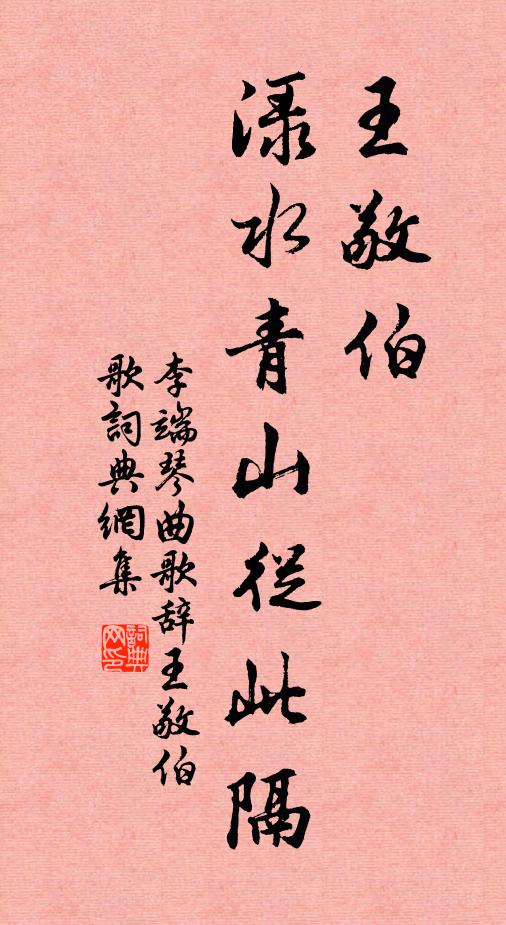 王敬伯
渌水青山從此隔
李端琴曲歌辞王敬伯
歌詞典網集
詞典网印